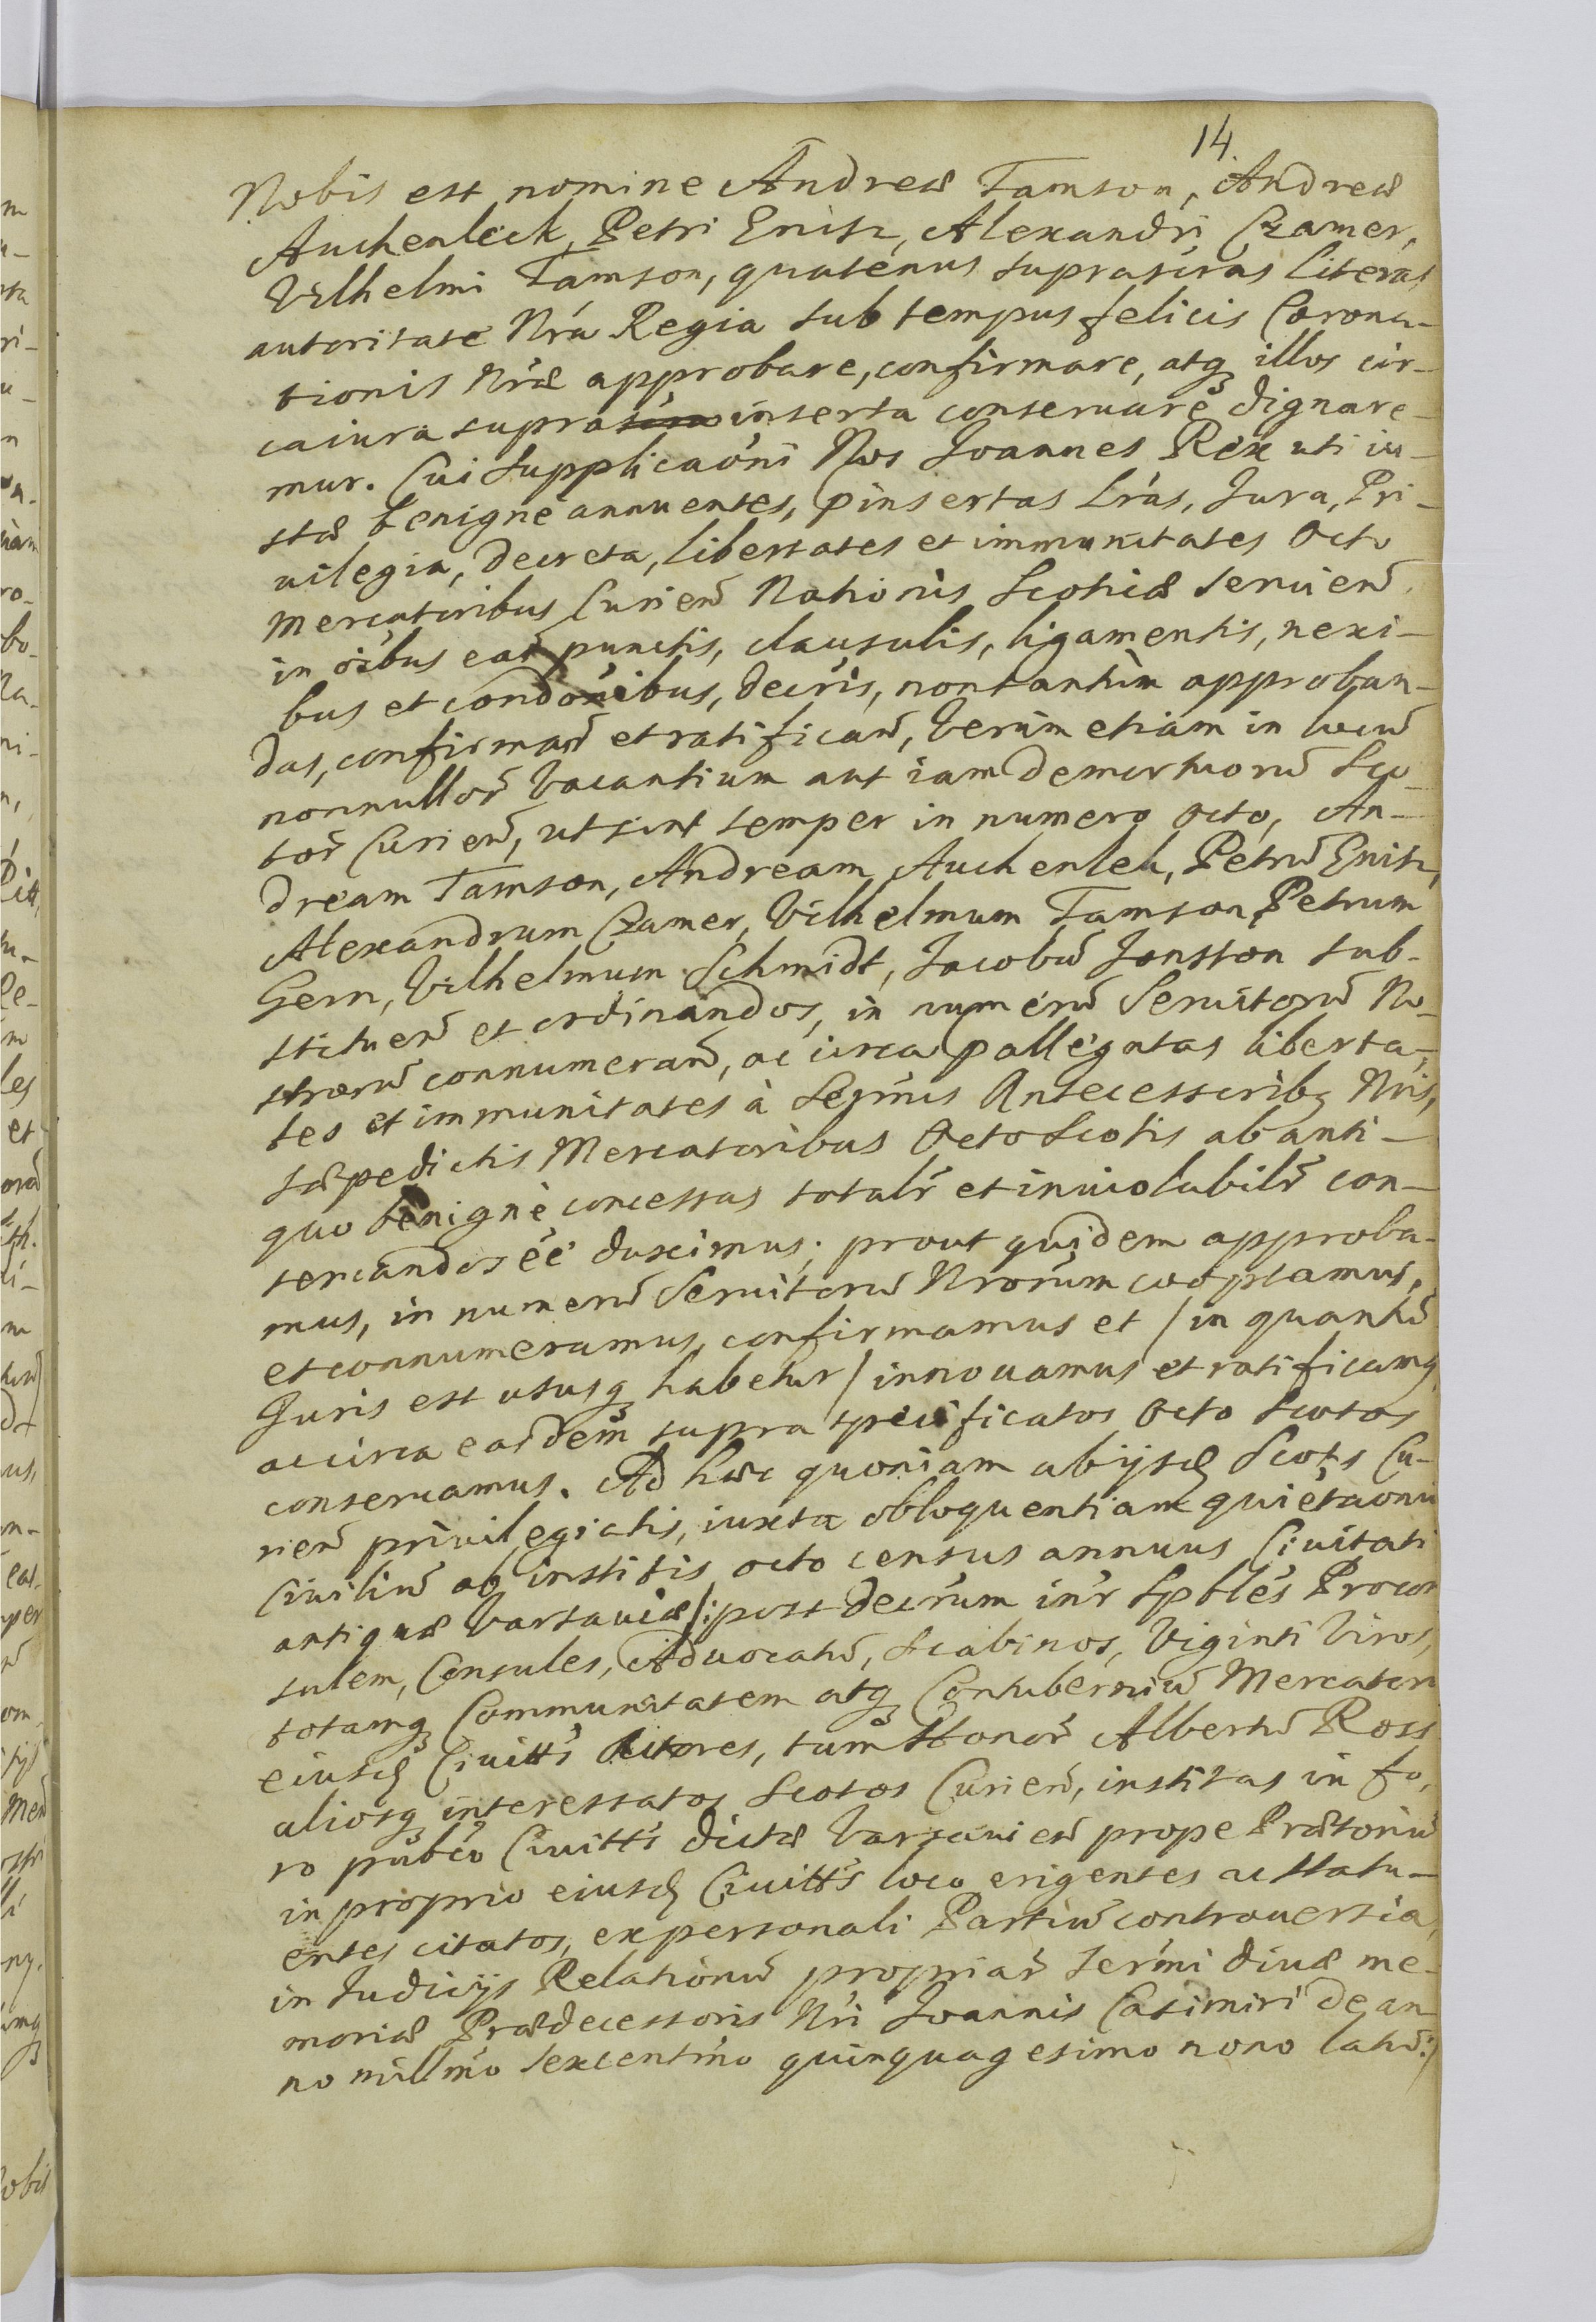 14.
Nobis est nomine Andreæ Tamson, Andreæ
Auchenleck, Petri Enitz, Alexandri Czamer,
Vilhelmi Tamson, quatenus suprascras literas
autoritate Nrã Regia sub tempus felicis Corona-
tionis Nræ approbare, confirmare, atq illos cir-
ca iura supra inserta conseruare dignare-
mur. Cui supplicaõni Nos Joannes Rex uti iu-
stæ benigne annuentes, pinsertas Lrás, Jura, Pri-
uilegia, decreta, libertates et immunitates Octo
Mercatoribus Curieñ Nationis Scoticæ seruieñ
in oibus eaȓ punctis, clausulis, ligamentis, nexi-
bus et condonibus, decris, non tantùm approban-
das, confirmañ et ratificañ, Verùm etiam in locũ
nonnulloȓ Vacantium aut iam demortuorũ Sco-
toȓ Curieñ, ut sint semper in numero octo, An-
dream Tamson, Andream Auchenlek, Petrũ Enitz,
Alexandrum Czamer, Vilhelmum Tamson Petrum
Gern, Vilhelmum Schmidt, Jacobũ Jonston sub-
stitueñ et ordinandos, in numerũ Seruitorũ No-
strorũ connumerañ, ac circa pallegatas liberta-
tes et immunitates à Sermis Antecessoribq Nris,
sæpedictis Mercatoribus Octo Scotis ab anti-
quo benignè concessas totalr et inuiolabilr con-
seruandos eé duximus; prout quidem approba-
mus, in numerũ Seruitorũ Nrorum cooptamus,
et connumeramus, confirmamus et / in quantũ
Juris est ususq habetur / innouamus et ratificamq
ac circa easdem supra specificatos Octo Scotos
conseruamus. Ad hæc quoniam ab ijsd Scotis Cu-
rieñ priuilegiatis, iuxta obloquentiam quietaonũ
Ciuiliũ ab institis octo census annuus Ciuitati
antiquæ Varsauiæ /: post decrum inr Spbles Procon
sulem, Consules, Aduocatũ, Scabinos, Viginti Viros,
totamq Communitatem atq Contuberniũ Mercator
eiusd Ciuitts Actores, tum Honor Albertũ Ross
aliosq interessatos Scotos Curieñ, institas in fo-
ro pubco Ciuitts dictæ Varsauieñ prope Prætoriũ
in proprio eiusd Ciuitts loco erigentes ac statu-
entes citatos, ex personali Partiũ controuersia
in Judicijs Relationũ propriaȓ Sermi diuæ me-
moriæ Prædecessoris Nri Joannis Casimiri de an
no millmo sexcentmo quinquagesimo nono latũ:/